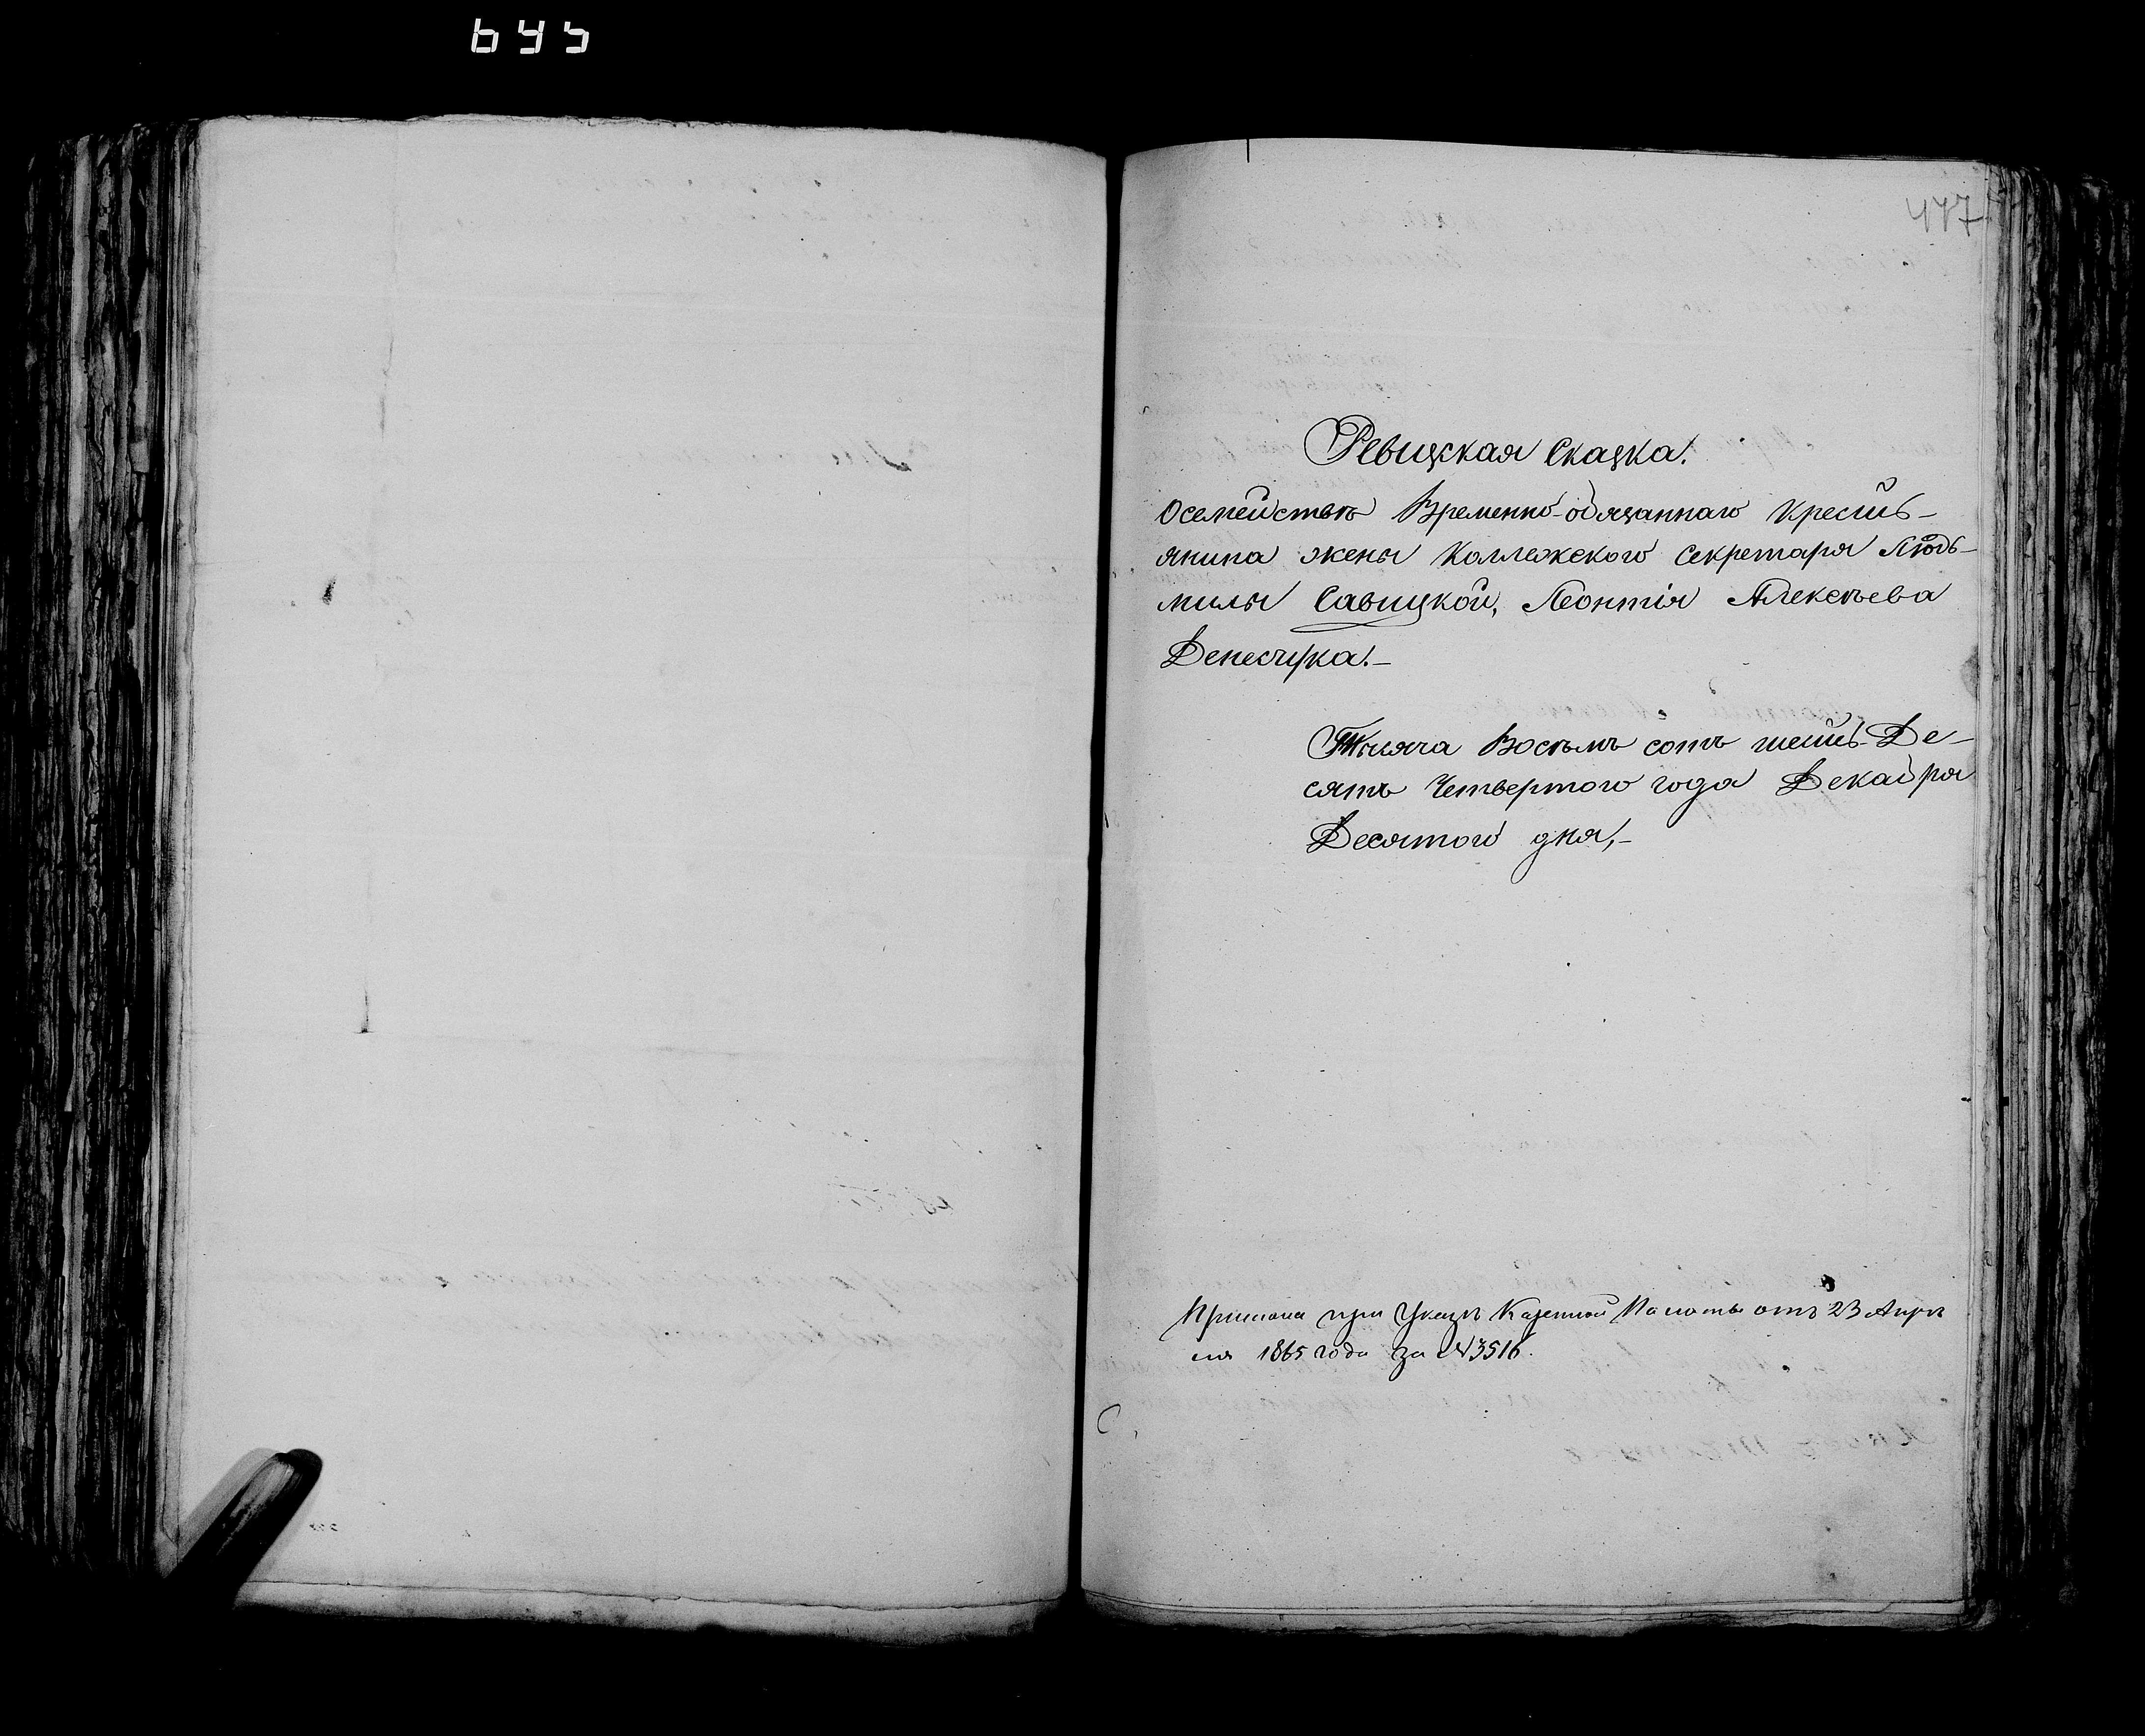 645
447
Ревизская Сказка!
О семействѣ Временно-обязаннаго кресть-
янина жены Коллежского Секретаря Людь-
милы Савицкой, Леонтія Алексѣева
Денесчука!-
Тысяча Восѣмъ сотъ шесть-Де-
сятъ Четвертого года Декабря
Десятого дня,-
при Указѣ Казенной Палаты отъ 23 Апрѣ
ля 1865 года за №3516.